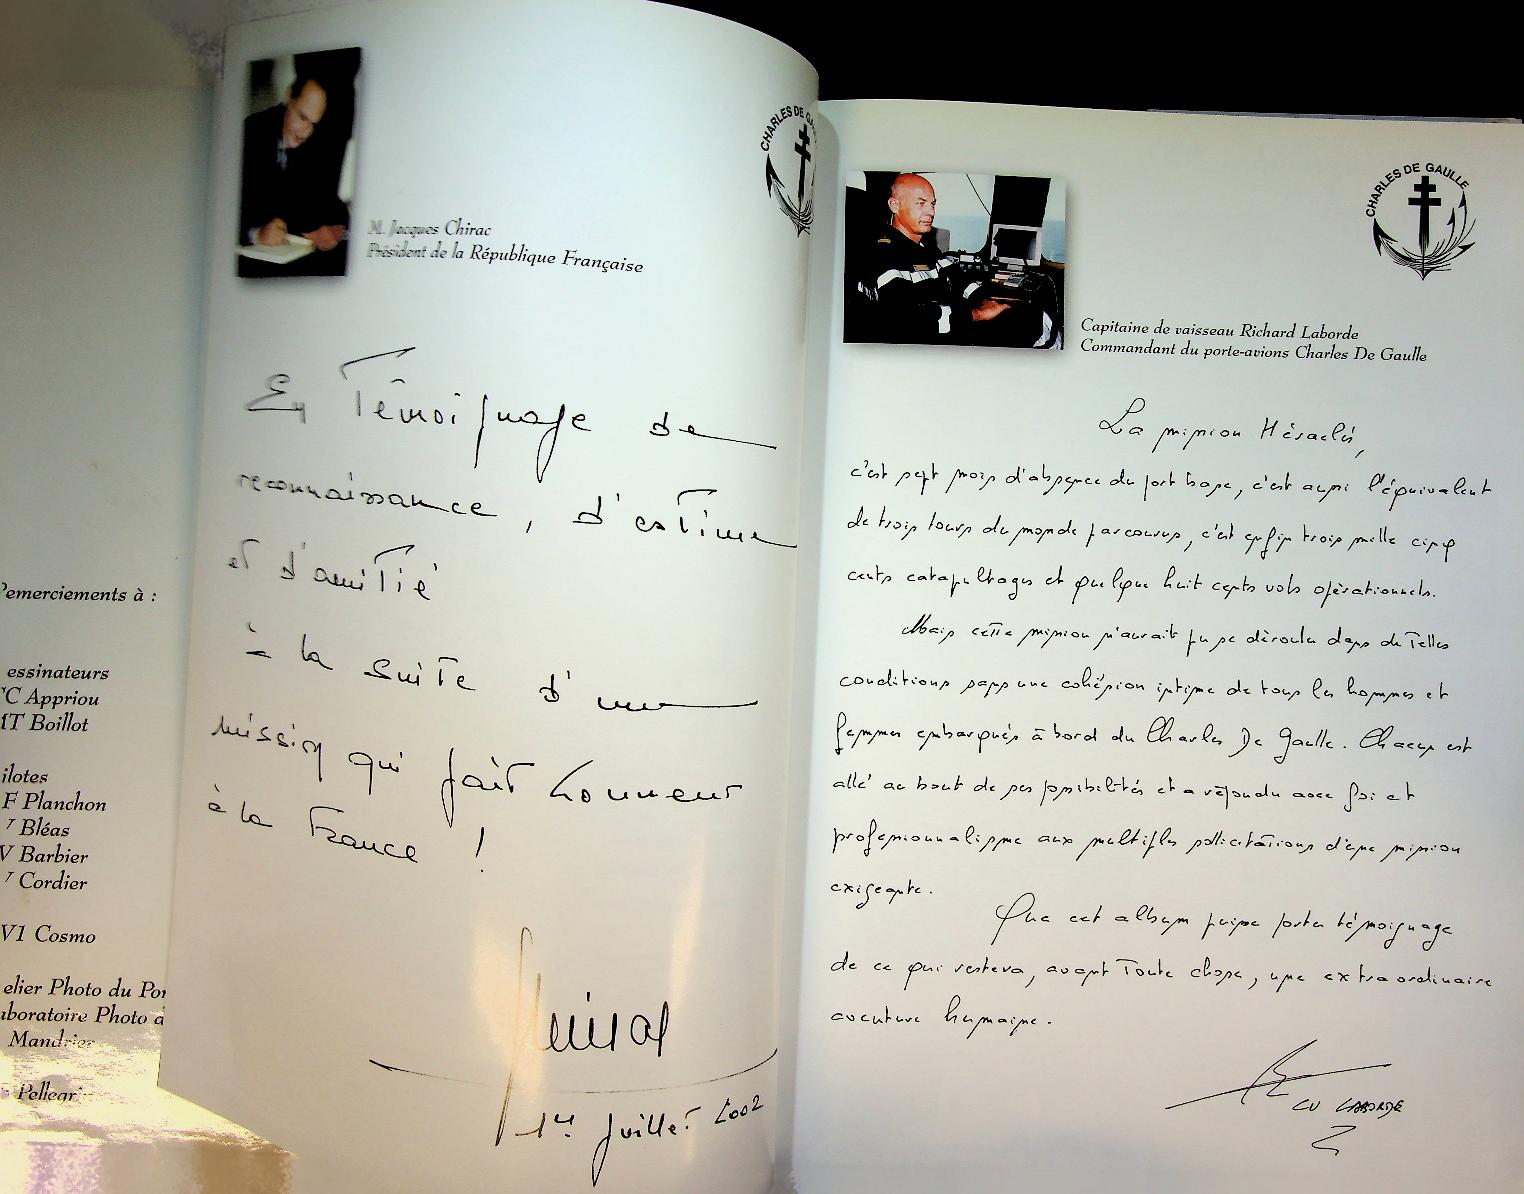 emerciements à :
essinateurs
C Appriou
T Boillot
ilotes
F Planchon
Bléas
V Barbier
Cordier
V1 Cosmo
elier Photo du Por
aboratoire Photo d
Mandrier
Pellegri
CHARLES DE GA
M. Jacques Chirac
Président de la République Française
En Témoignage de
reconnaissance, d'estime
et d'amitié
à la suite d'une
mission qui fait honneur
à la France !
1er Juillet 2002
CHARLES DE GAULLE
Capitaine de vaisseau Richard Laborde
Commandant du porte-avions Charles De Gaulle
La mission Héraclès,
c'est sept mois d'absence du port base, c'est aussi l'équivalent
de trois tours du monde parcourus, c'est enfin trois mille cinq
cents catapultages et quelque huit cents vols opérationnels.
Mais cette mission n'aurait pu se dérouler dans de telles
conditions sans une cohésion intime de tous les hommes et
femmes embarqués à bord du Charles De Gaulle. Chacun est
allé au bout de ses possibilités et a répondu avec foi et
professionnalisme aux multiples sollicitations d'une mission
exigeante.
Que cet album puisse porter témoignage
de ce qui restera, avant toute chose, une extraordinaire
aventure humaine.
CV LABORDE